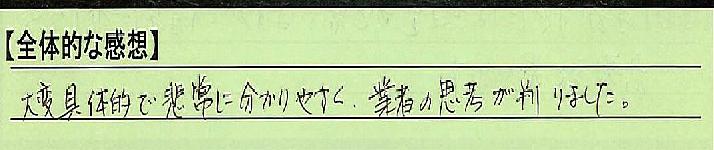 【全体的な感想】
大変具体的で非常に分かりやすく、業者の思考が判りました。